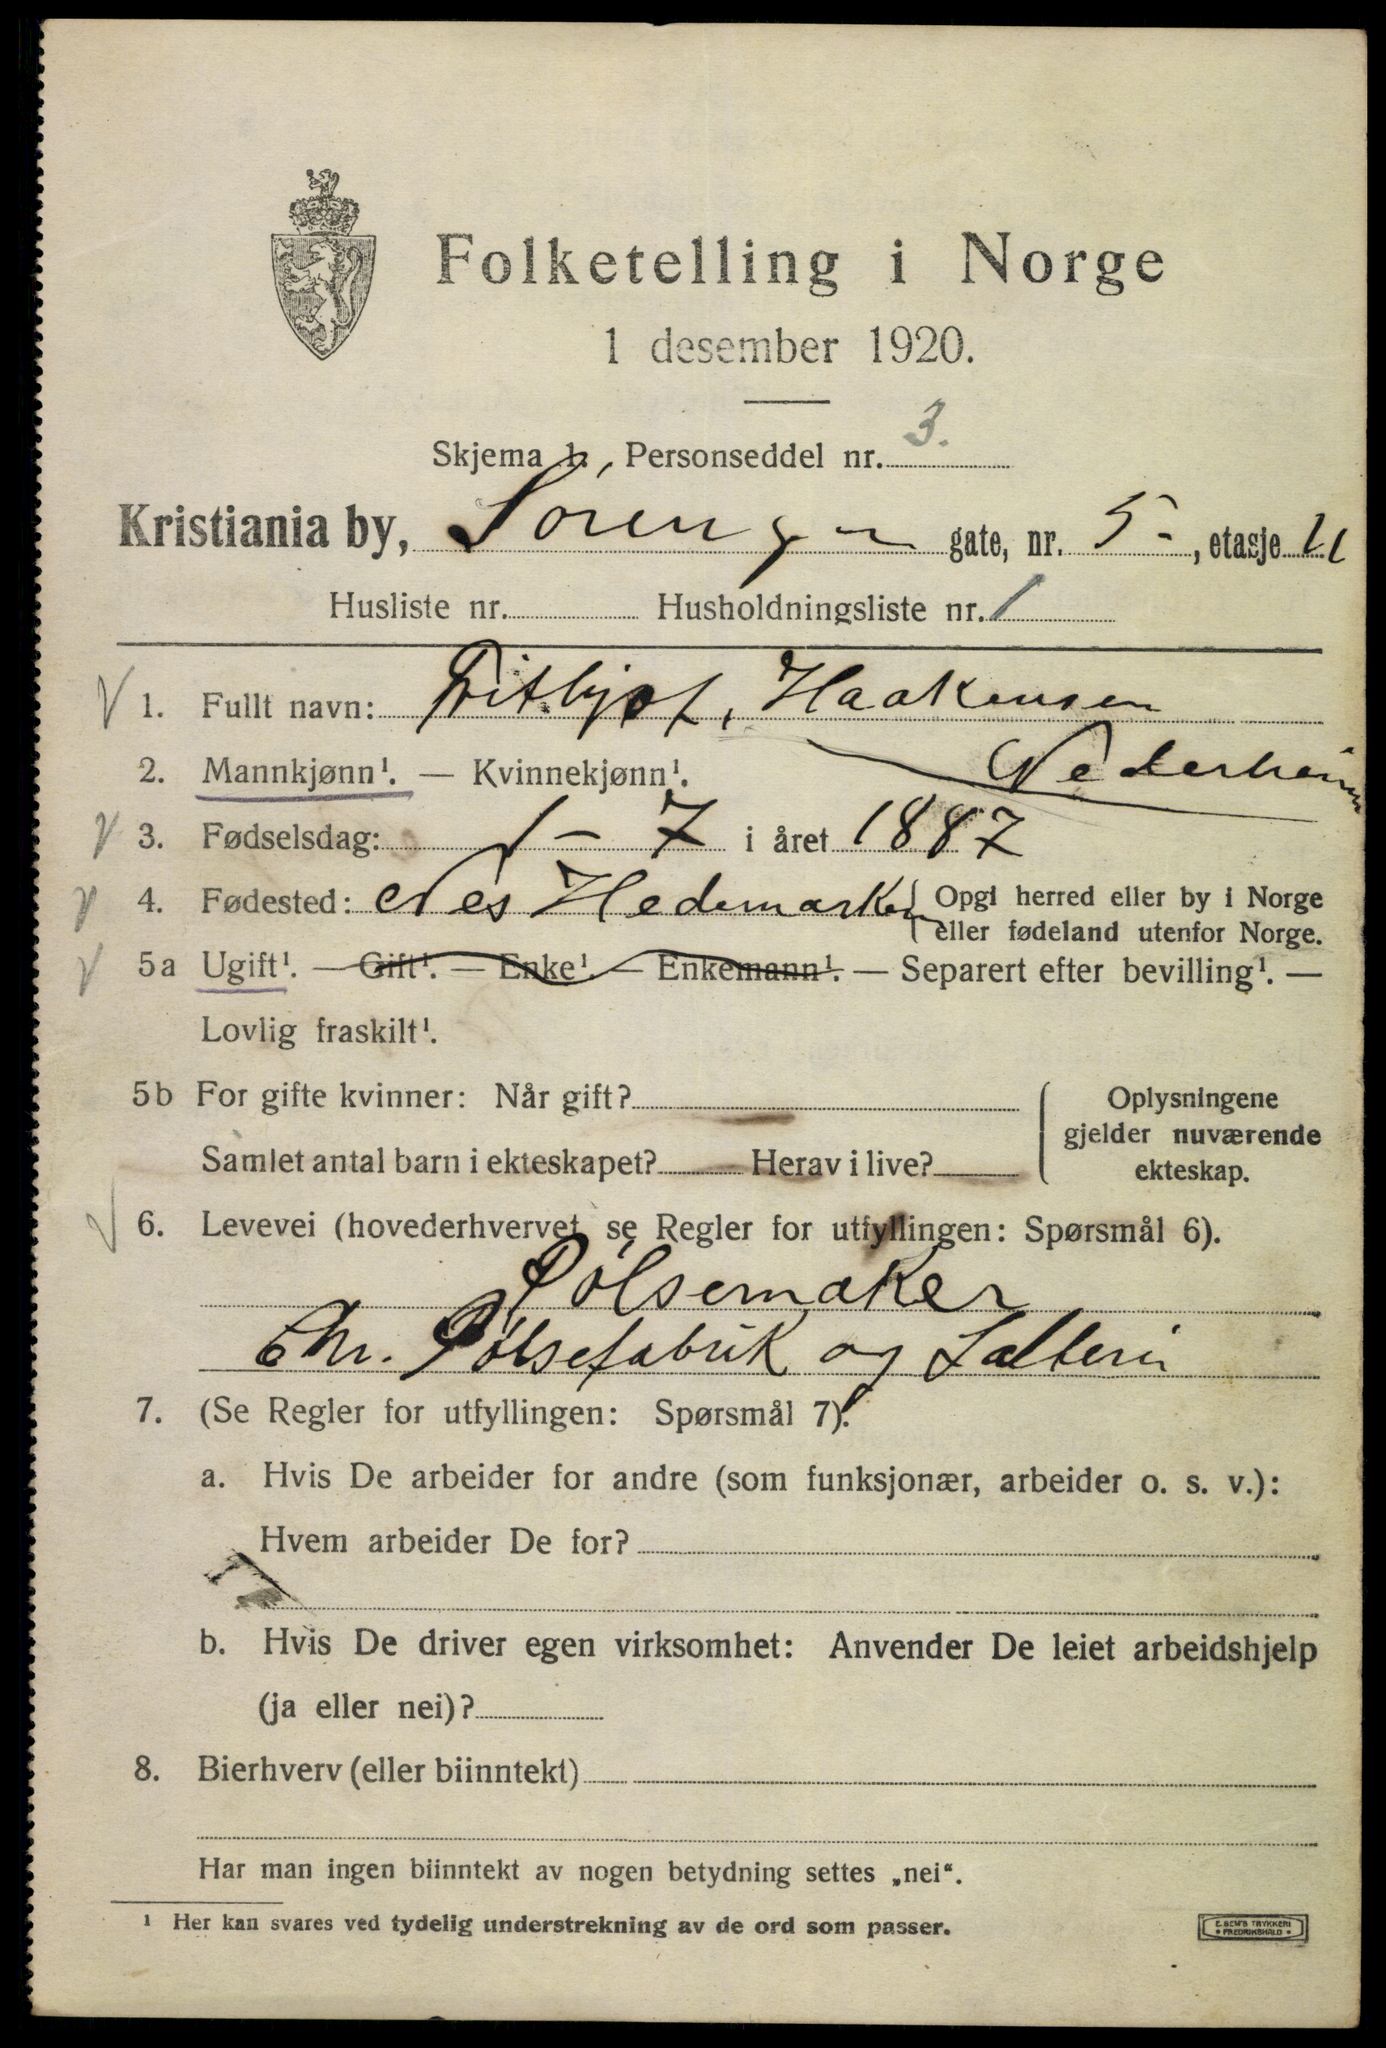 Folketelling i Norge
1 desember 1920.
Skjema 1. Personseddel nr. 3.
Kristiania by, Sørenga gate, nr. 5-, etasje II
Husliste nr. Husholdningsliste nr. 1
1. Fullt navn: Frithjof, Haakensen
Nederheim
2. Mannkjønn¹. — Kvinnekjønn¹.
3. Fødselsdag: 1 - 7 i året 1887
4. Fødested: Nes Hedemarken { Opgi herred eller by i Norge
eller fødeland utenfor Norge.
5a Ugift¹. — Gift¹. — Enke¹. — Enkemann¹. — Separert efter bevilling¹. —
Lovlig fraskilt¹.
5b For gifte kvinner: Når gift?
Samlet antal barn i ekteskapet? Herav i live?
Oplysningene
gjelder nuværende
ekteskap.
6. Levevei (hovederhvervet, se Regler for utfyllingen: Spørsmål 6).
Pølsemaker
Chr. Pølsefabrik og Salteri
7. (Se Regler for utfyllingen: Spørsmål 7).
a. Hvis De arbeider for andre (som funksjonær, arbeider o. s. v.):
Hvem arbeider De for?
b. Hvis De driver egen virksomhet: Anvender De leiet arbeidshjelp
(ja eller nei)?
8. Bierhverv (eller biinntekt)
Har man ingen biinntekt av nogen betydning settes „nei“.
¹ Her kan svares ved tydelig understrekning av de ord som passer.
E. SEM'S TRYKKERI
* FREDRIKSHALD *